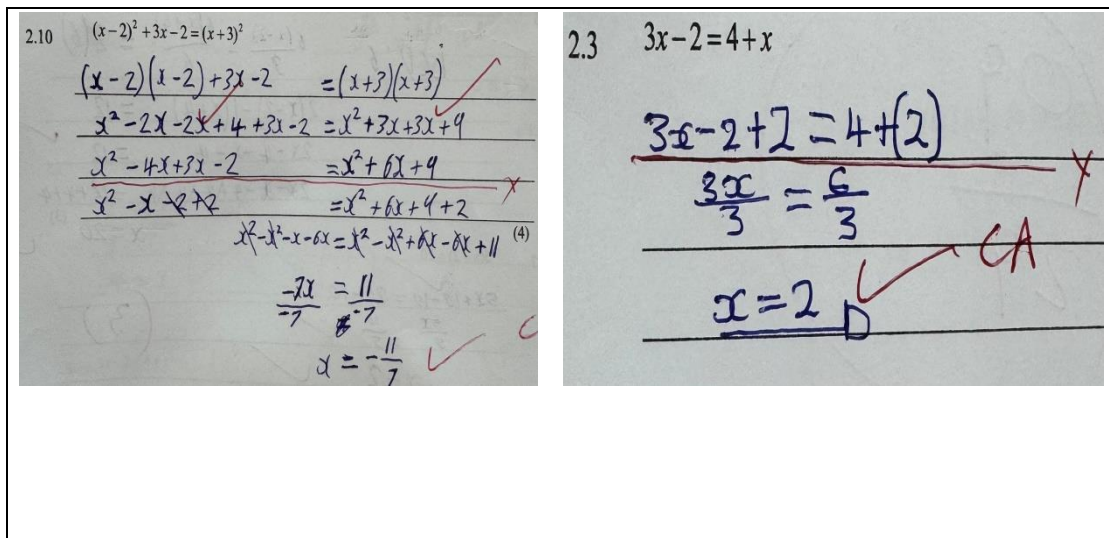 2.10 (x−2)² +3x−2=(x+3)²
(x-2)(x-2)+3x-2 =(x+3)(x+3)
x²-2x-2x+4+3x-2 =x²+3x+3x+9
x²-4x+3x-2 =x²+6x+9
x²-x-2+2 =x²+6x+9+2
x²-x²-x-6x=x²-x²+6x-6x+11 (4)
-7x/-7 = 11/-7
x = -11/7
2.3 3x−2=4+x
3x-2+2=4+(2)
3x/3 = 6/3
x=2
CA